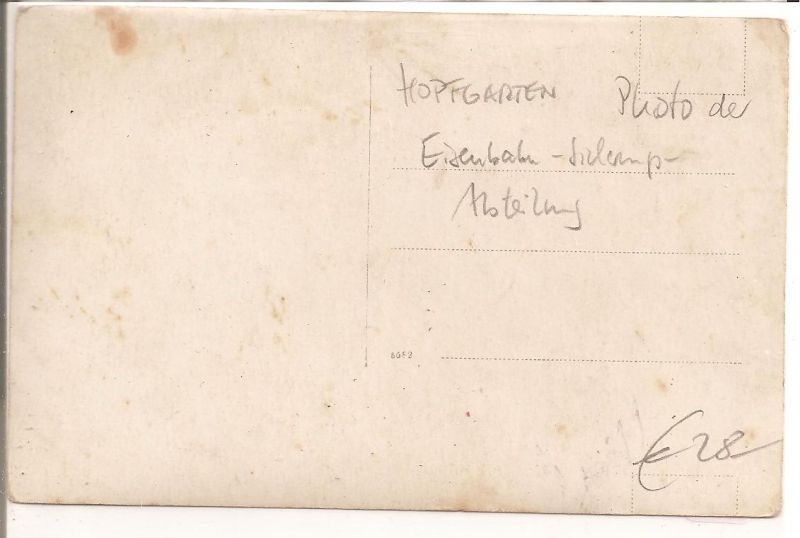 HOPFGARTEN Photo der
Eisenbahn-Sicherungs-
Abteilung
6GE2
€ 28